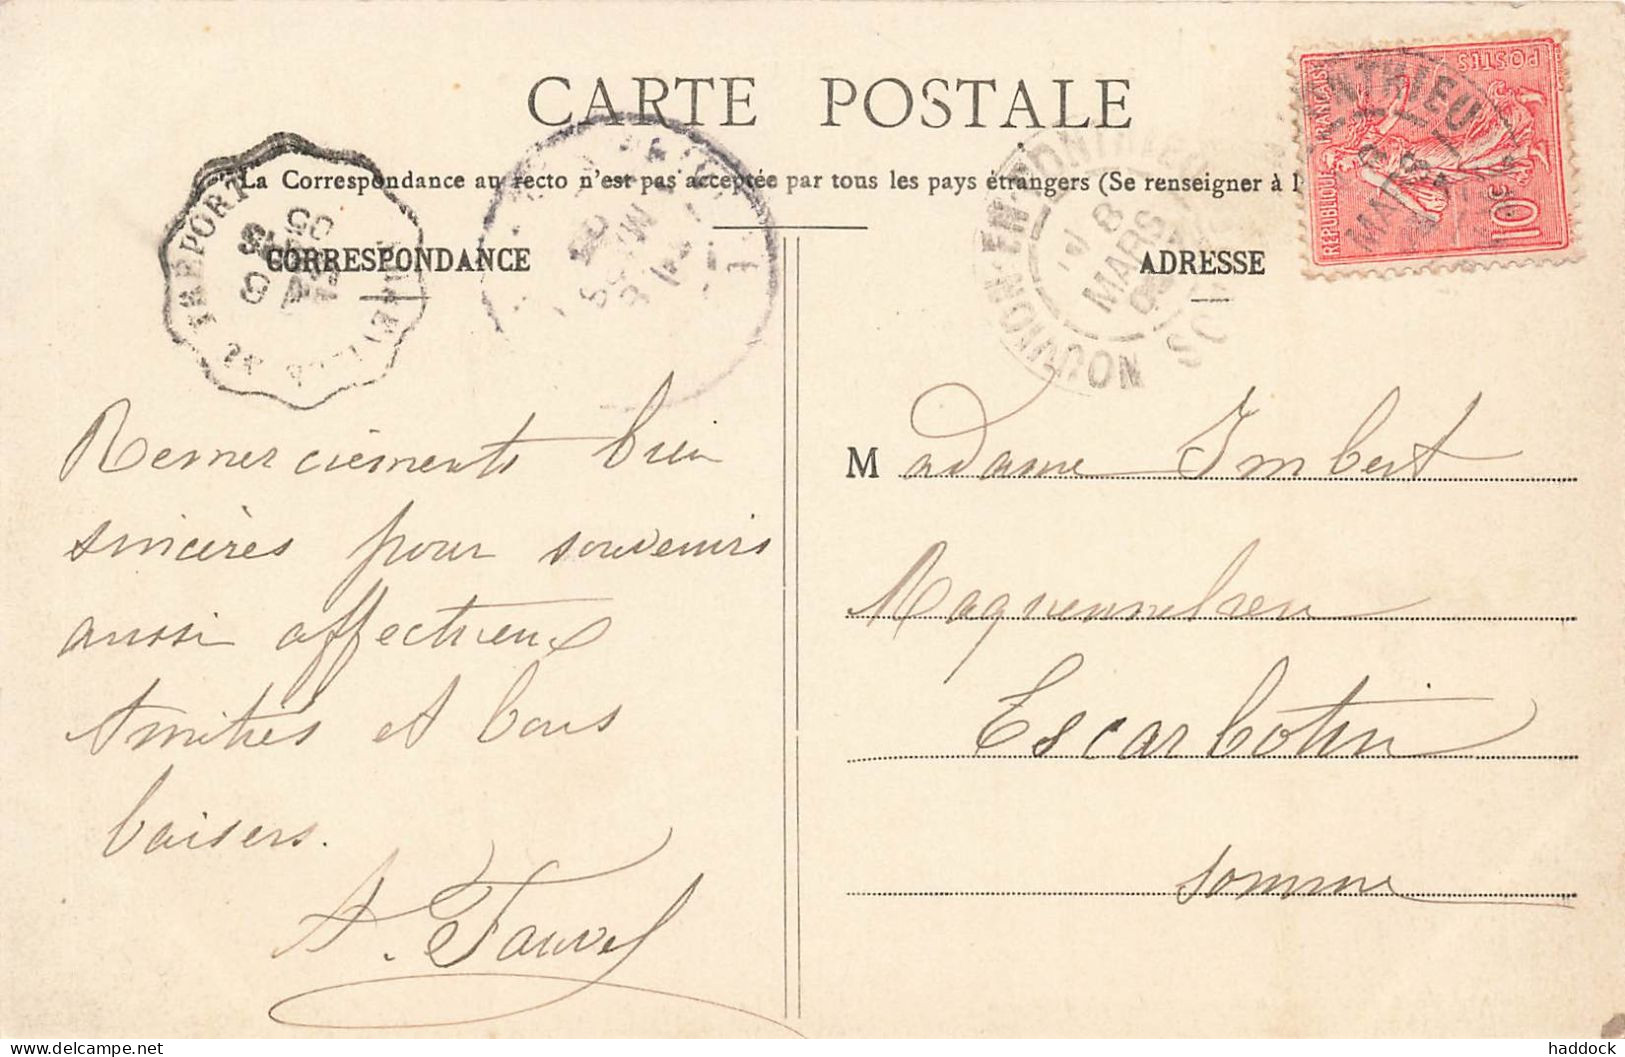 CARTE POSTALE
La Correspondance au recto n'est pas acceptée par tous les pays étrangers (Se renseigner à l
CORRESPONDANCE
ADRESSE
TRÉPORT
05
NOUVION-EN-PONTHIEU
SOMME
8
MARS
05
POSTES
RÉPUBLIQUE FRANÇAISE
10c
Remerciements bien
sincères pour souvenirs
aussi affectueux
Amitiés et bons
baisers.
A. Fauvel
Madame Imbert
Escarbotin
Somme
delcampe.net
haddock